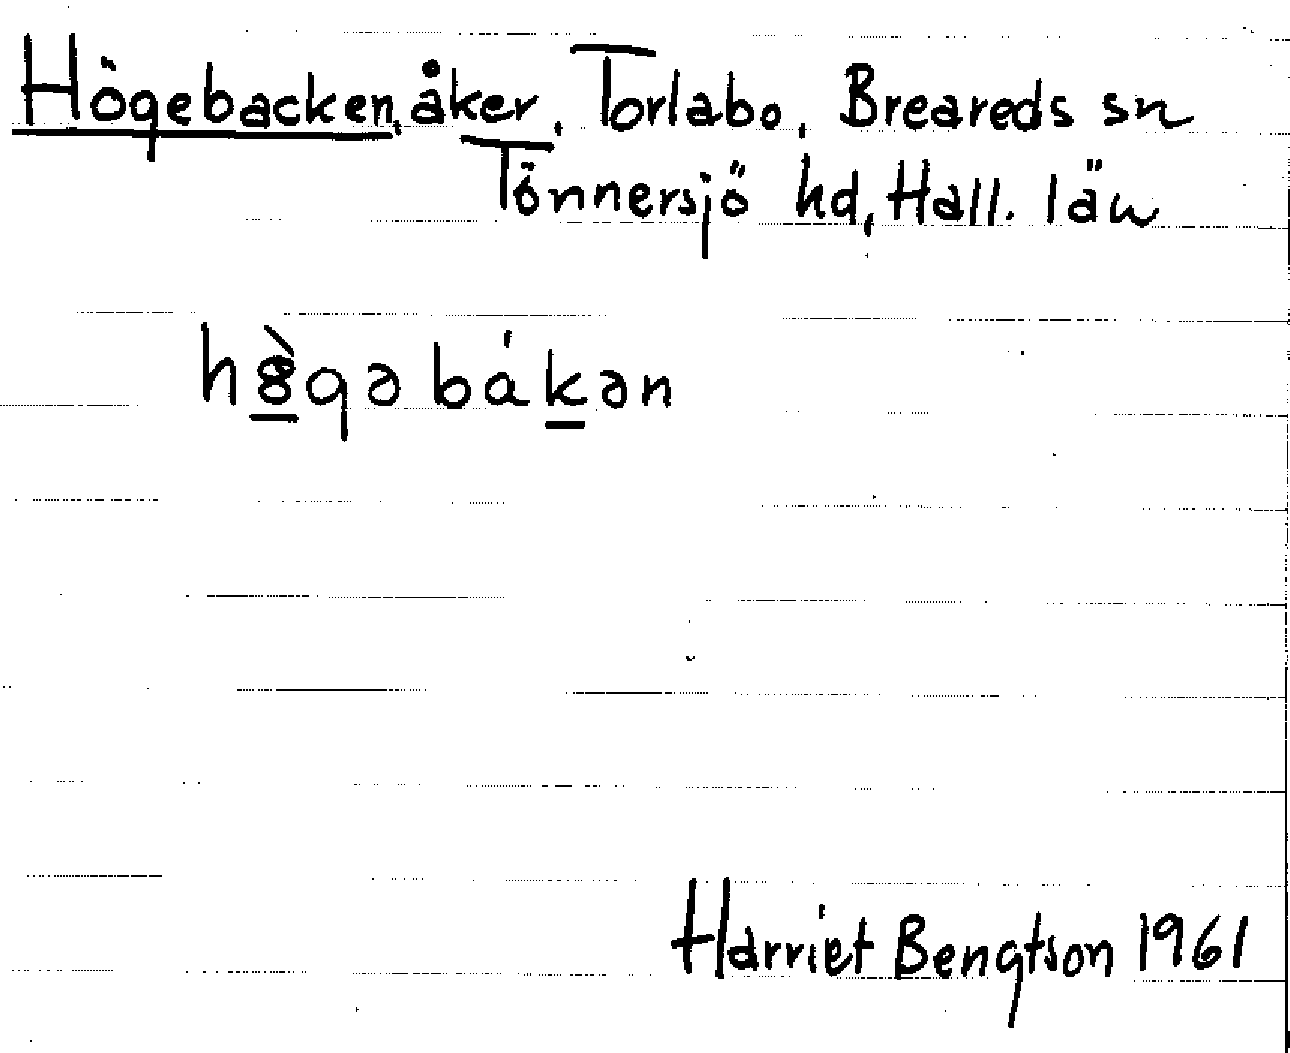 Högebacken, åker, Torlabo, Breareds sn
Tönnersjö hd, Hall. län
hø̀gəbákən
Harriet Bengtson 1961